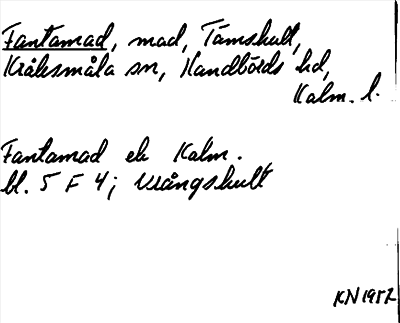 Fantamad, mad, Tämshult,
Kråksmåla sn, Handbörds hd,
Kalm. l.
Fantamad ek Kalm.
bl. 5 F 4; Krångshult
KN 1982